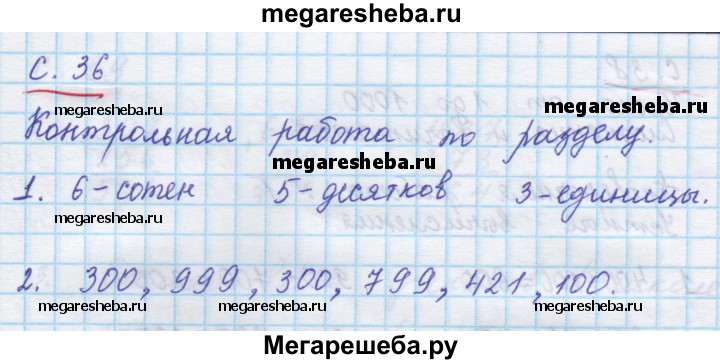 megaresheba.ru
с. 36
megaresheba.ru
megaresheba.ru
Контрольная работа по разделу.
megaresheba.ru
1. 6-сотен 5-десятков 3-единицы.
megaresheba.ru
megaresheba.ru
2. 300, 999, 300, 799, 421, 100.
megaresheba.ru megaresheba.ru megaresheba.ru
Мегарешеба.ру